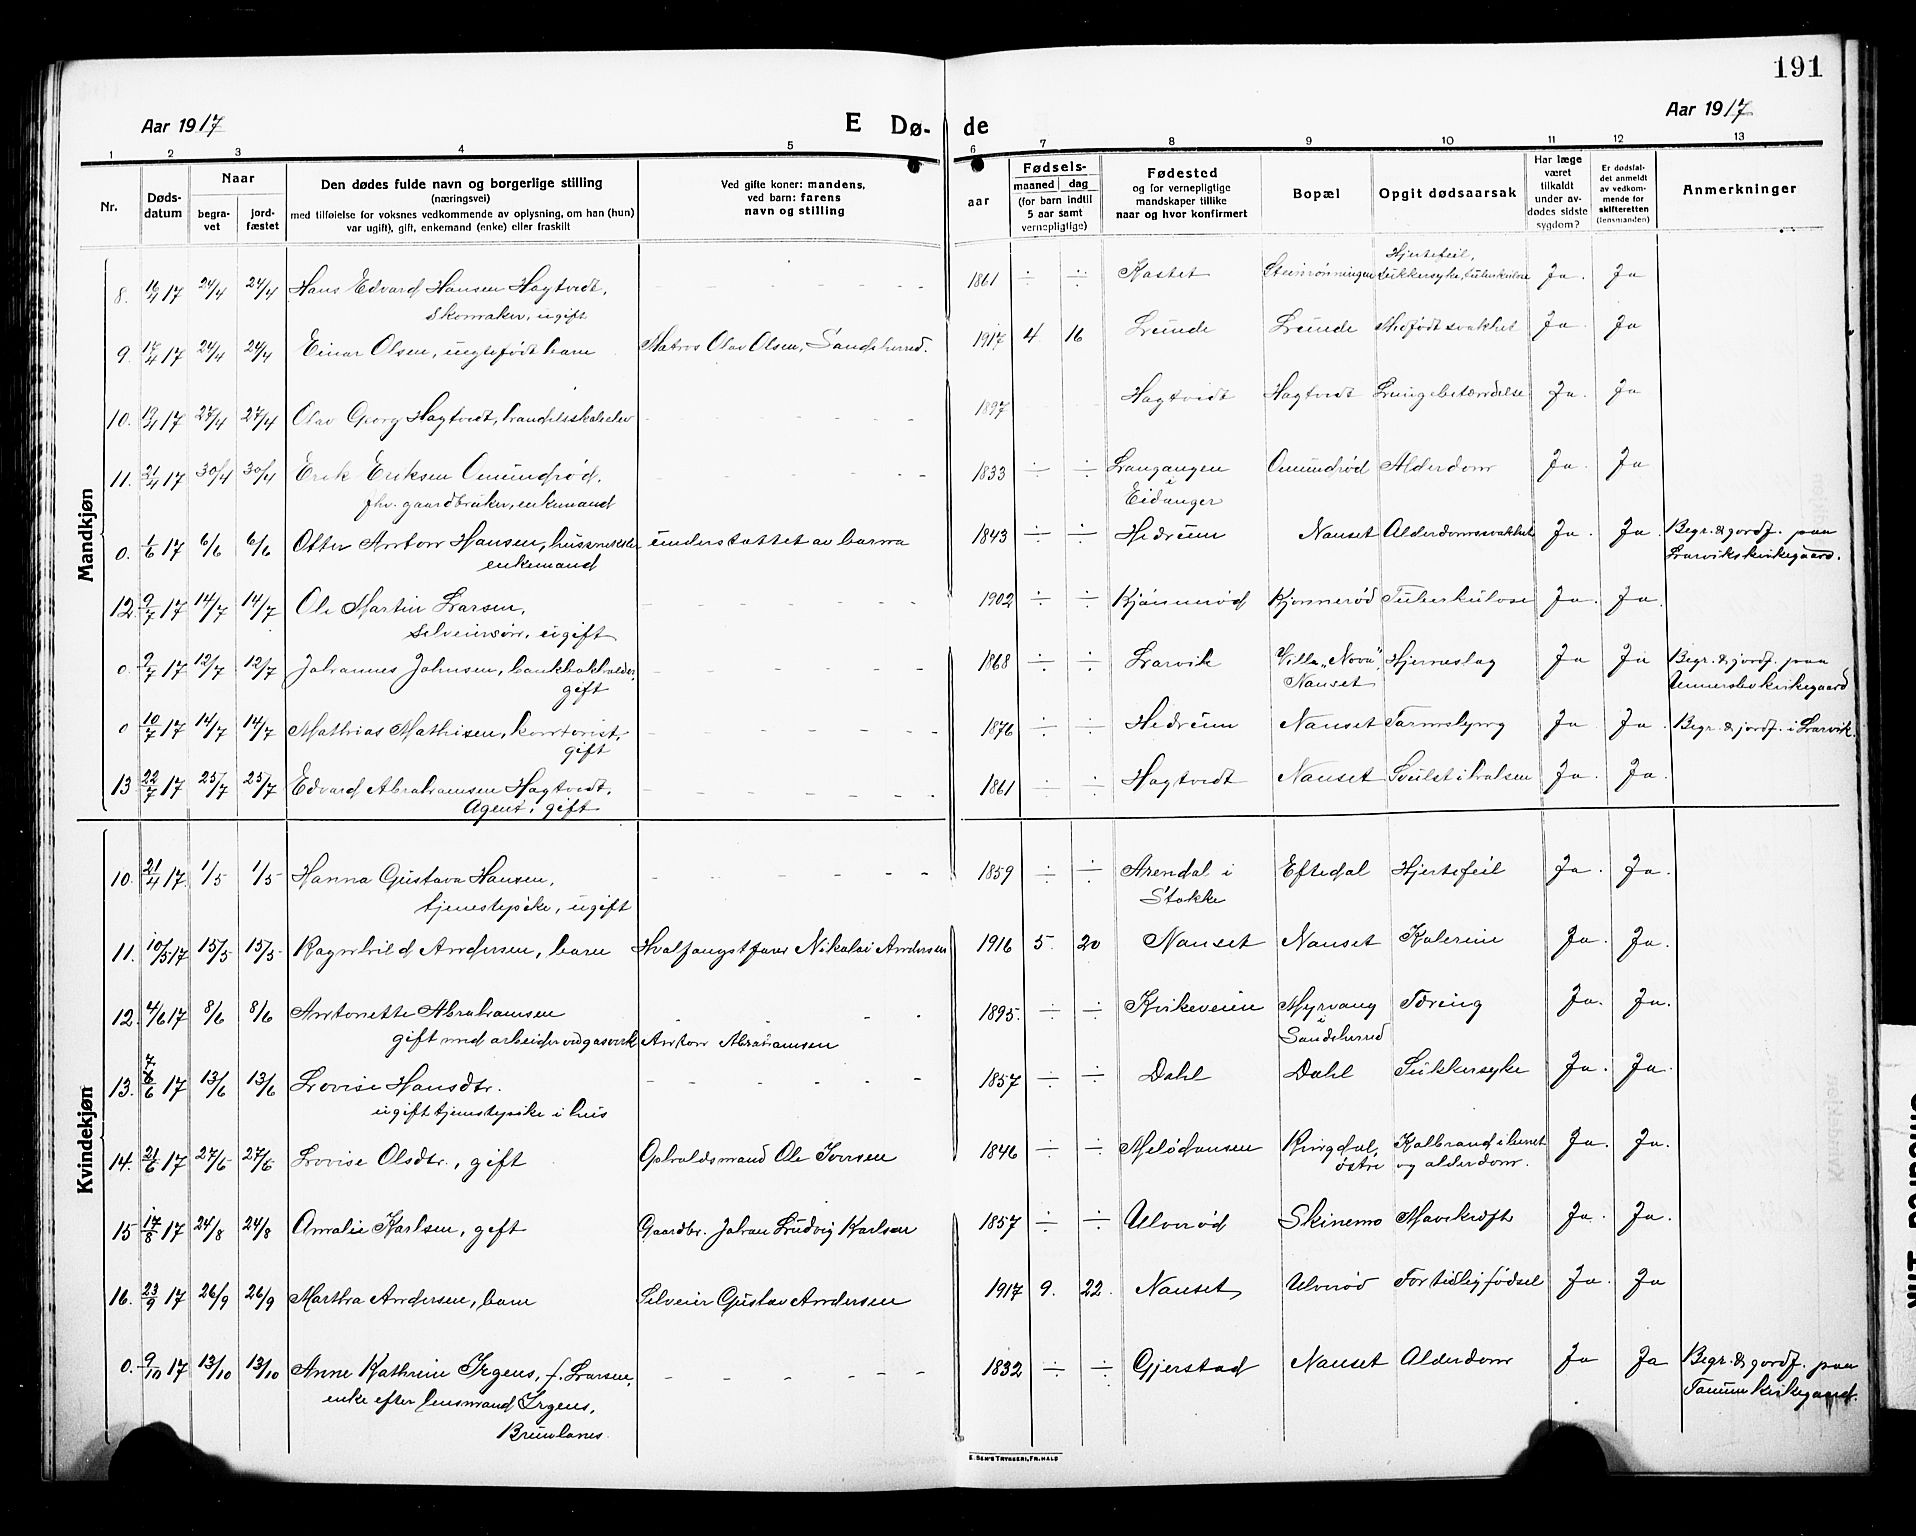 191
Aar 1917 E Dø- de Aar 1917
1 2 3 4 5 6 7 8 9 10 11 12 13
Nr.
Døds-
datum
Naar
begra-
vet
jord-
fæstet
Den dødes fulde navn og borgerlige stilling
(næringsvei)
med tilføielse for voksnes vedkommende av oplysning, om han (hun)
var ugift), gift, enkemand (enke) eller fraskilt
Ved gifte koner: mandens,
ved barn: farens
navn og stilling
aar
Fødsels-
maaned dag
(for barn indtil
5 aar samt
vernepligtige)
Fødested
og for vernepligtige
mandskaper tillike
naar og hvor konfirmert
Bopæl
Opgit dødsaarsak
Har læge
været
tilkaldt
under av-
dødes sidste
sygdom?
Er dødsfal-
det anmeldt
av vedkom-
mende for
skifteretten
(lensmanden)
Anmerkninger
Mandkjøn
Hjertefeil,
8. 16/4 17 24/4 24/4 Hans Edvard Hansen Hagtvedt, - - - - - - 1861 ÷ ÷ Kastet Steinrønningen sukkersyke, tuberkulose Ja. Ja
Skomaker, ugift
9. 17/4 17 24/4 24/4 Einar Olsen, uegtefødt barn Matros Olav Olsen, Sandeherred. 1917 4 16 Lrunde Lrunde Medfødt svakhet Ja. Ja
10. 19/4 17 27/4 27/4 Olav Georg Hagtvedt, handelsskoleelev - - - - - 1897 Hagtvedt Hagtvedt Lungebetændelse Ja. Ja
11. 21/4 17 30/4 30/4 Erik Eriksen Omundrød, - - - - - 1833 ÷ ÷ Langangen Omundrød Alderdom Ja. Ja
fhv. gaardbruker, enkemand i Eidanger
0. 1/6 17 6/6 6/6 Otter Anton Hansen, husmektsler understøttet av barna 1843 ÷ ÷ Hedrum Nanset Alderdomssvakhet Ja. Ja. Begr. & jordf. paa
enkemand Larviks kirkegaard.
12. 9/7 17 14/7 14/7 Ole Martin Larsen, - - - - - 1902 ÷ ÷ Kjønnerød Kjønnerød Tuberkulose Ja. Ja.
selveiersøn, ugift
0. 9/7 17 12/7 12/7 Johannes Johnsen, bankbokholder, - - - - - 1868 ÷ ÷ Larvik Villa „Nova", Hjerneslag Ja Ja Begr. & jordf. paa
gift Nanset Undersbo kirkegaard
0 10/7 17 14/7 14/7 Mathias Mathisen, kontorist, - - - - - - 1876 ÷ ÷ Hedrum Nanset Tarmslyng Ja Ja. Begr. & jordf. i Larvik.
gift
13 22/7 17 25/7 25/7 Edvard Abrahamsen Hagtvedt, - - - - - 1861 ÷ ÷ Hagtvedt Nanset Svulst i halsen Ja. Ja.
Agent, gift
Kvindekjøn
10. 21/4 17. 1/5 1/5 Hanna Gustava Hansen, - - - - - - 1859 ÷ ÷ Arendal i Eftedal Hjertefeil Ja. Ja.
tjenestepike, ugift Stokke
11. 10/5 17 15/5 15/5 Ragnhild Andersen, barn Hvalfangstfarer Nikolai Andersen 1916 5. 20 Nanset Nanset Kolerine Ja. Ja.
12. 4/6 17 8/6 8/6 Antonette Abrahamsen - - - 1895. ÷ ÷ Kirkeveien Myrvang Tæring Ja. Ja.
gift med arbeider ved gasverk Anton Abrahamsen i Sandeherred
13. 7/6 17 13/6 13/6 Lovise Hansdtr. - - - - - 1857 ÷ ÷ Dahl Dahl Sukkersyke Ja. Ja
ugift tjenestepike i hus
14. 21/6 17 27/6 27/6 Lovise Olsdtr., gift Opholdsmand Ole Iversen 1846 ÷ ÷ Melødansen Ringdal, Kolbrand i benet Ja. Ja.
østre og alderdom.
15 17/8 17 24/8 24/8 Amalie Karlsen, gift Gaardbr. Johan Ludvig Karlsen 1857 ÷ ÷ Ulverød Skinmo Mavekræft Ja. Ja.
16. 23/9 17 26/9 26/9 Martha Andersen, barn Selveier Gustav Andersen 1917 9. 22. Nanset Ulverød For tidlig fødsel Ja. Ja
0. 9/10 17 13/10 13/10 Anne Kathrine Irgens, f. Larsen, - - - - - - 1832 ÷ ÷ Gjerstad Nanset Alderdom Ja Ja Begr. & jordf. paa
enke efter lensmand Irgens, Tanum kirkegaard.
Brunlanes.
E. SEM'S TRYKKERI, FR.HALD